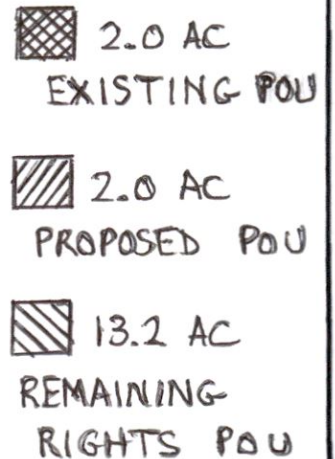 2.0 AC
EXISTING POU
2.0 AC
PROPOSED POU
13.2 AC
REMAINING
RIGHTS POU